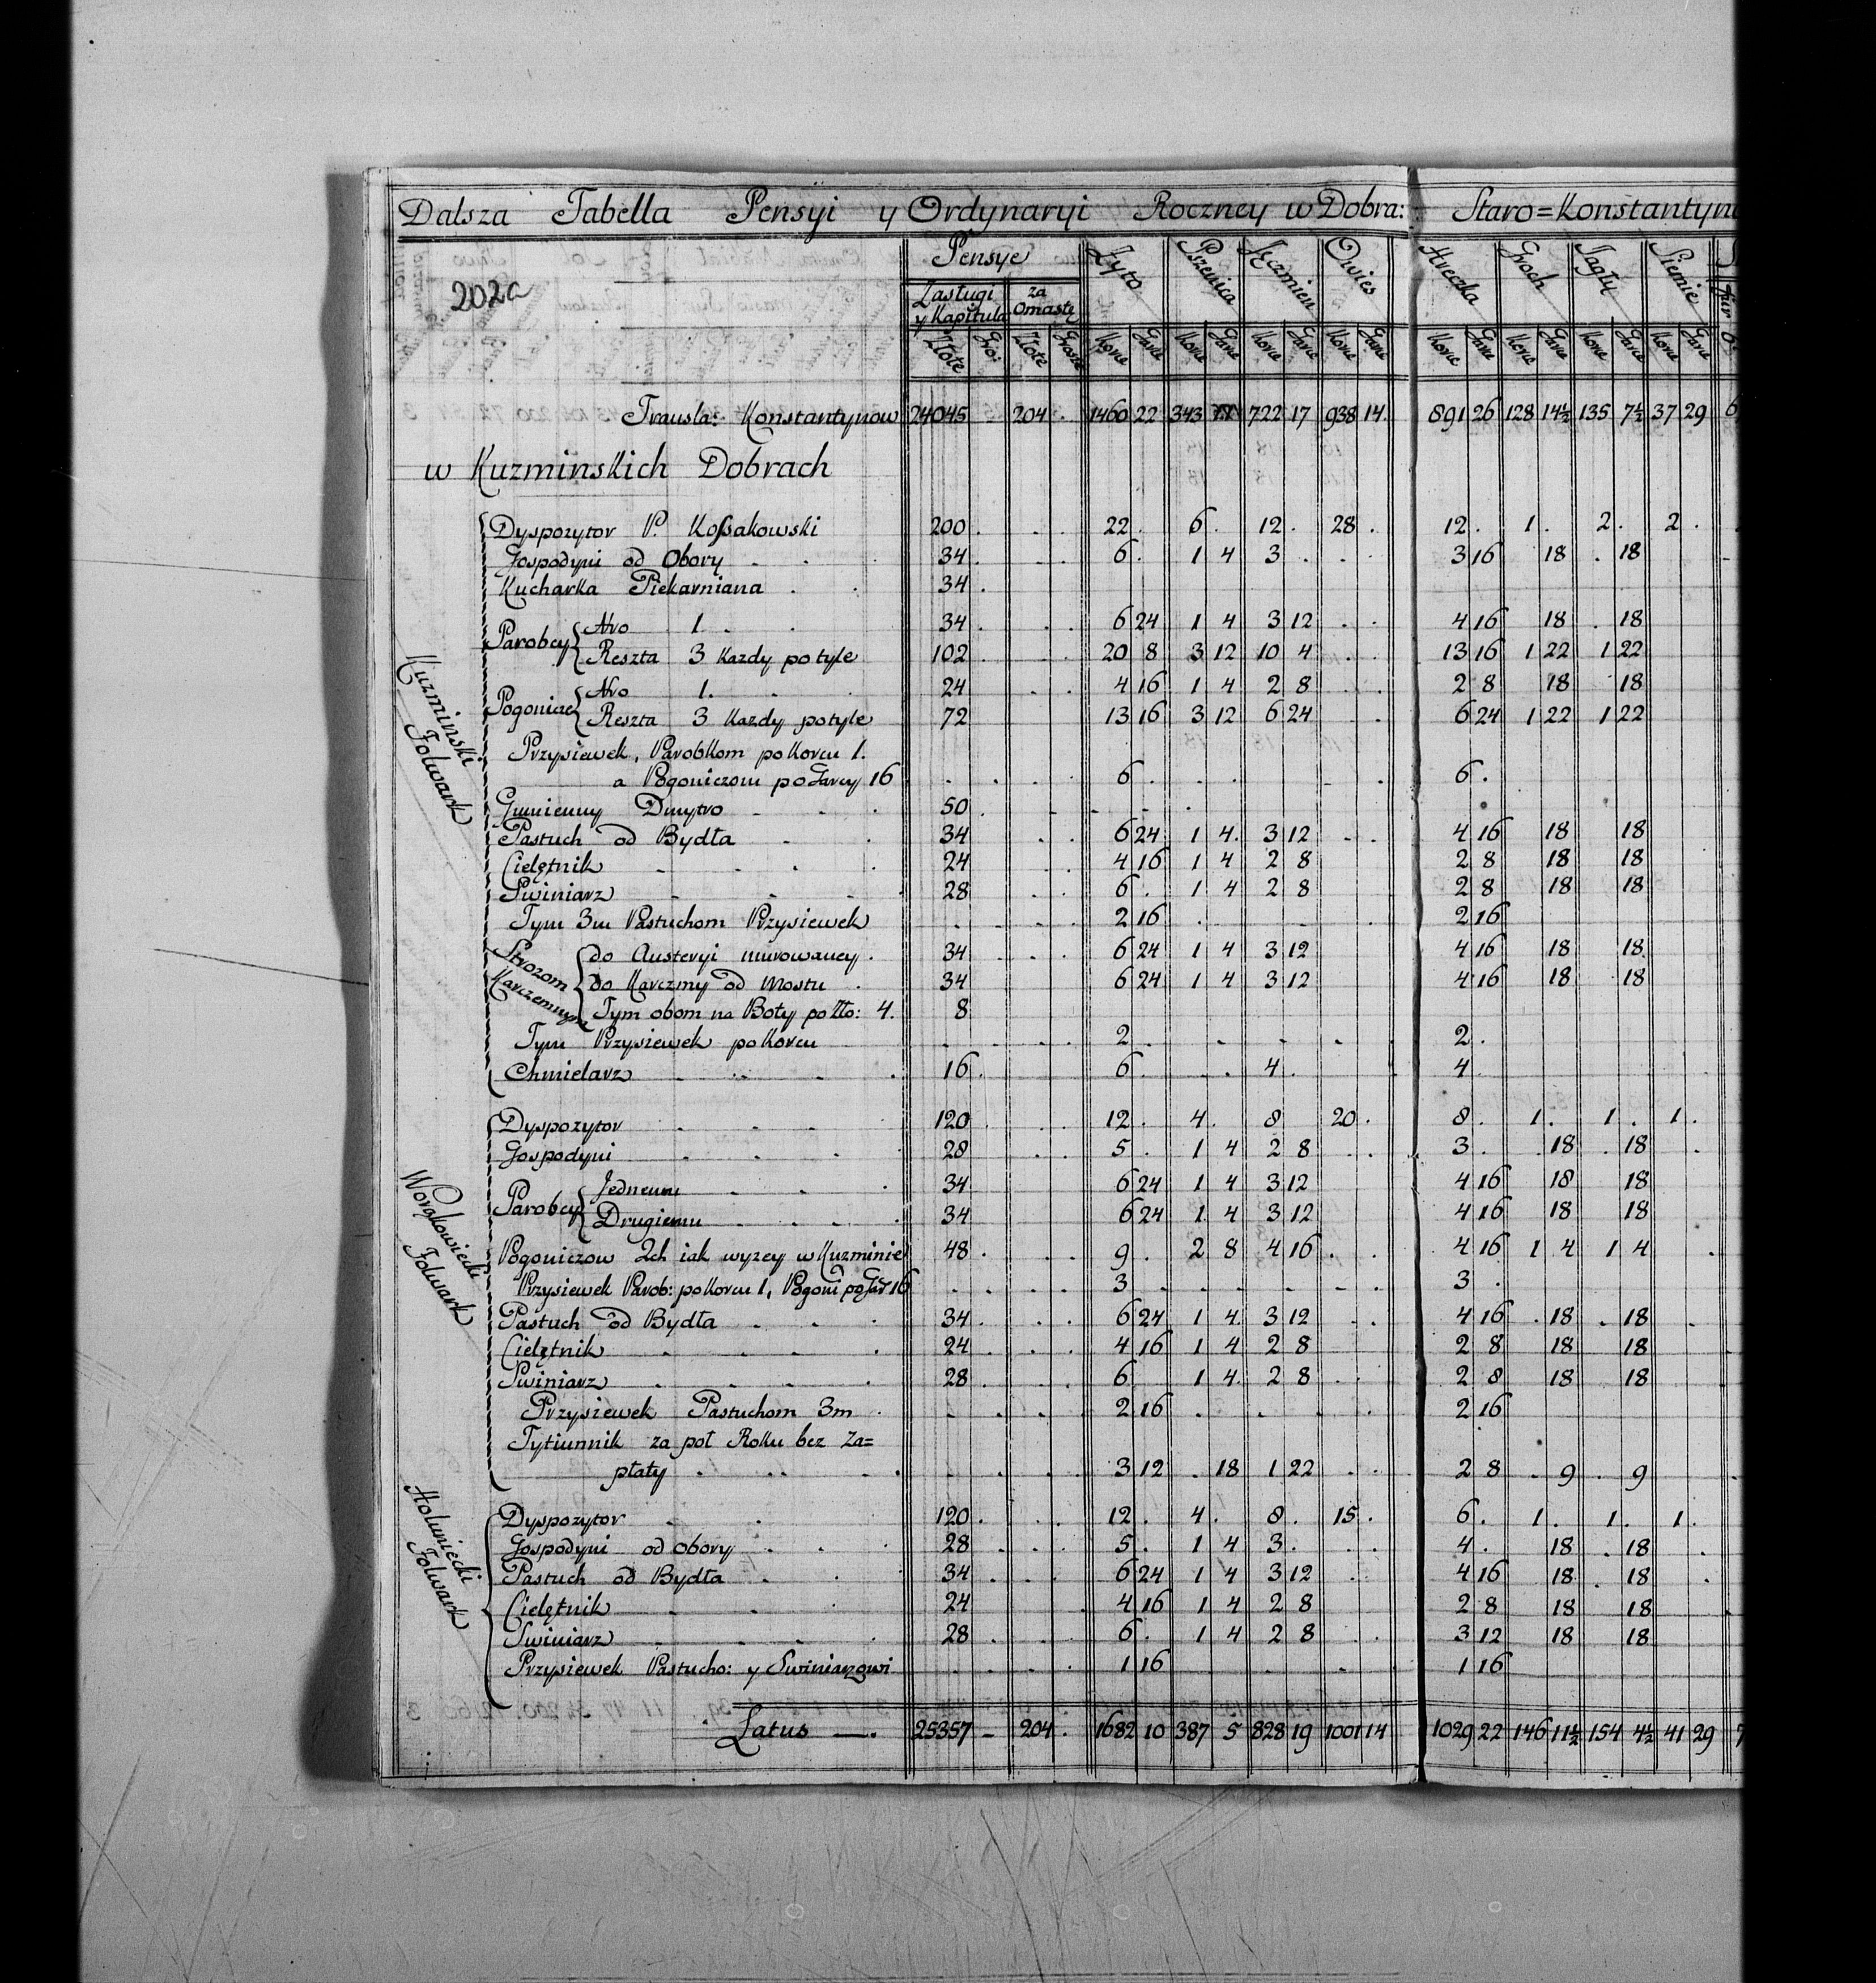 Dalsza Tabella Pensyi y Ordynaryi Roczney w Dobra: Staro=Konstantyn
202a
Pensye Zyto Pszenica Jęczmien Owies Hreczka Groch Jagły Siemie
Zasługi y Kapitula za Omastę
Złote Gro: Złote Grosze Korce Garce Korce Garce Korce Garce Korce Garce Korce Garce Korce Garce Korce Garce Korce Garce
Transla: Konstantynow 24045 - 204 . 1460 22 343 722 17 938 14 891 26 128 14½ 135 7½ 37 29 6
w Kuzminskich Dobrach
Kuzminski Folwark
Dyspozytor P. Kossakowski 200 . 22 . 6 . 12 . 28 . 12 . 1 . 2 . 2 .
Gospodyni od Obory 34 . 6 . 1 4 3 . 3 16 18 18
Kucharka Piekarniana 34 .
Parobcy Nro 1. 34 . 6 24 1 4 3 12 4 16 18 18
Reszta 3 Kazdy po tyle 102 20 8 3 12 10 4 13 16 1 22 1 22
Pogonicze Nro 1. 24 4 16 1 4 2 8 2 8 18 18
Reszta 3 Kazdy po tyle 72 13 16 3 12 6 24 6 24 1 22 1 22
Przysiewek, Parobkom po Korcu 1.
a Pogoniczom po Garcy 16 6 . 6 .
Gumienny Dmytro 50
Pastuch od Bydła 34 6 24 1 4 3 12 4 16 18 18
Cielętnik 24 4 16 1 4 2 8 2 8 18 18
Swiniarz 28 6 . 1 4 2 8 2 8 18 18
Tym 3m Pastuchom Przysiewek 2 16 2 16
Strozom Karczemnym do Austeryi murowaney 34 6 24 1 4 3 12 4 16 18 18
do Karczmy od Mostu 34 6 24 1 4 3 12 4 16 18 18
Tym obom na Boty po Zło: 4. 8
Tym Przysiewek po Korcu 2 . 2 .
Chmielarz 16 . 6 . 4 . 4 .
Worakowiecki Folwark
Dyspozytor 120 . 12 . 4 . 8 . 20 . 8 . 1 . 1 . 1 .
Gospodyni 28 5 . 1 4 2 8 3 . 18 18
Parobcy Jednemu 34 6 24 1 4 3 12 4 16 18 18
Drugiemu 34 6 24 1 4 3 12 4 16 18 18
Pogoniczow 2ch iak wyzey w Kuzminie 48 . 9 . 2 8 4 16 4 16 1 4 1 4
Przysiewek Parob: po Korcu 1, Pogoni po Gar 16 3 . 3 .
Pastuch od Bydła 34 . 6 24 1 4 3 12 4 16 18 18
Cielętnik 24 4 16 1 4 2 8 2 8 18 18
Swiniarz 28 6 1 4 2 8 2 8 18 18
Przysiewek Pastuchom 3m 2 16 2 16
Tytiunnik za poł Roku bez Za=
płaty 3 12 . 18 1 22 2 8 9 9
Holuniecki Folwark
Dyspozytor 120 . 12 . 4 . 8 . 15 . 6 . 1 . 1 . 1 .
Gospodyni od obory 28 . 5 . 1 4 3 . 4 . 18 18
Pastuch od Bydła 34 . 6 24 1 4 3 12 4 16 18 18
Cielętnik 24 4 16 1 4 2 8 2 8 18 18
Swiniarz 28 6 . 1 4 2 8 3 12 18 18
Przysiewek Pastucho: y Swiniarzowi 1 16 1 16
Latus 25357 - 204 . 1682 10 387 5 828 19 1001 14 1029 22 146 11½ 154 4½ 41 29 7